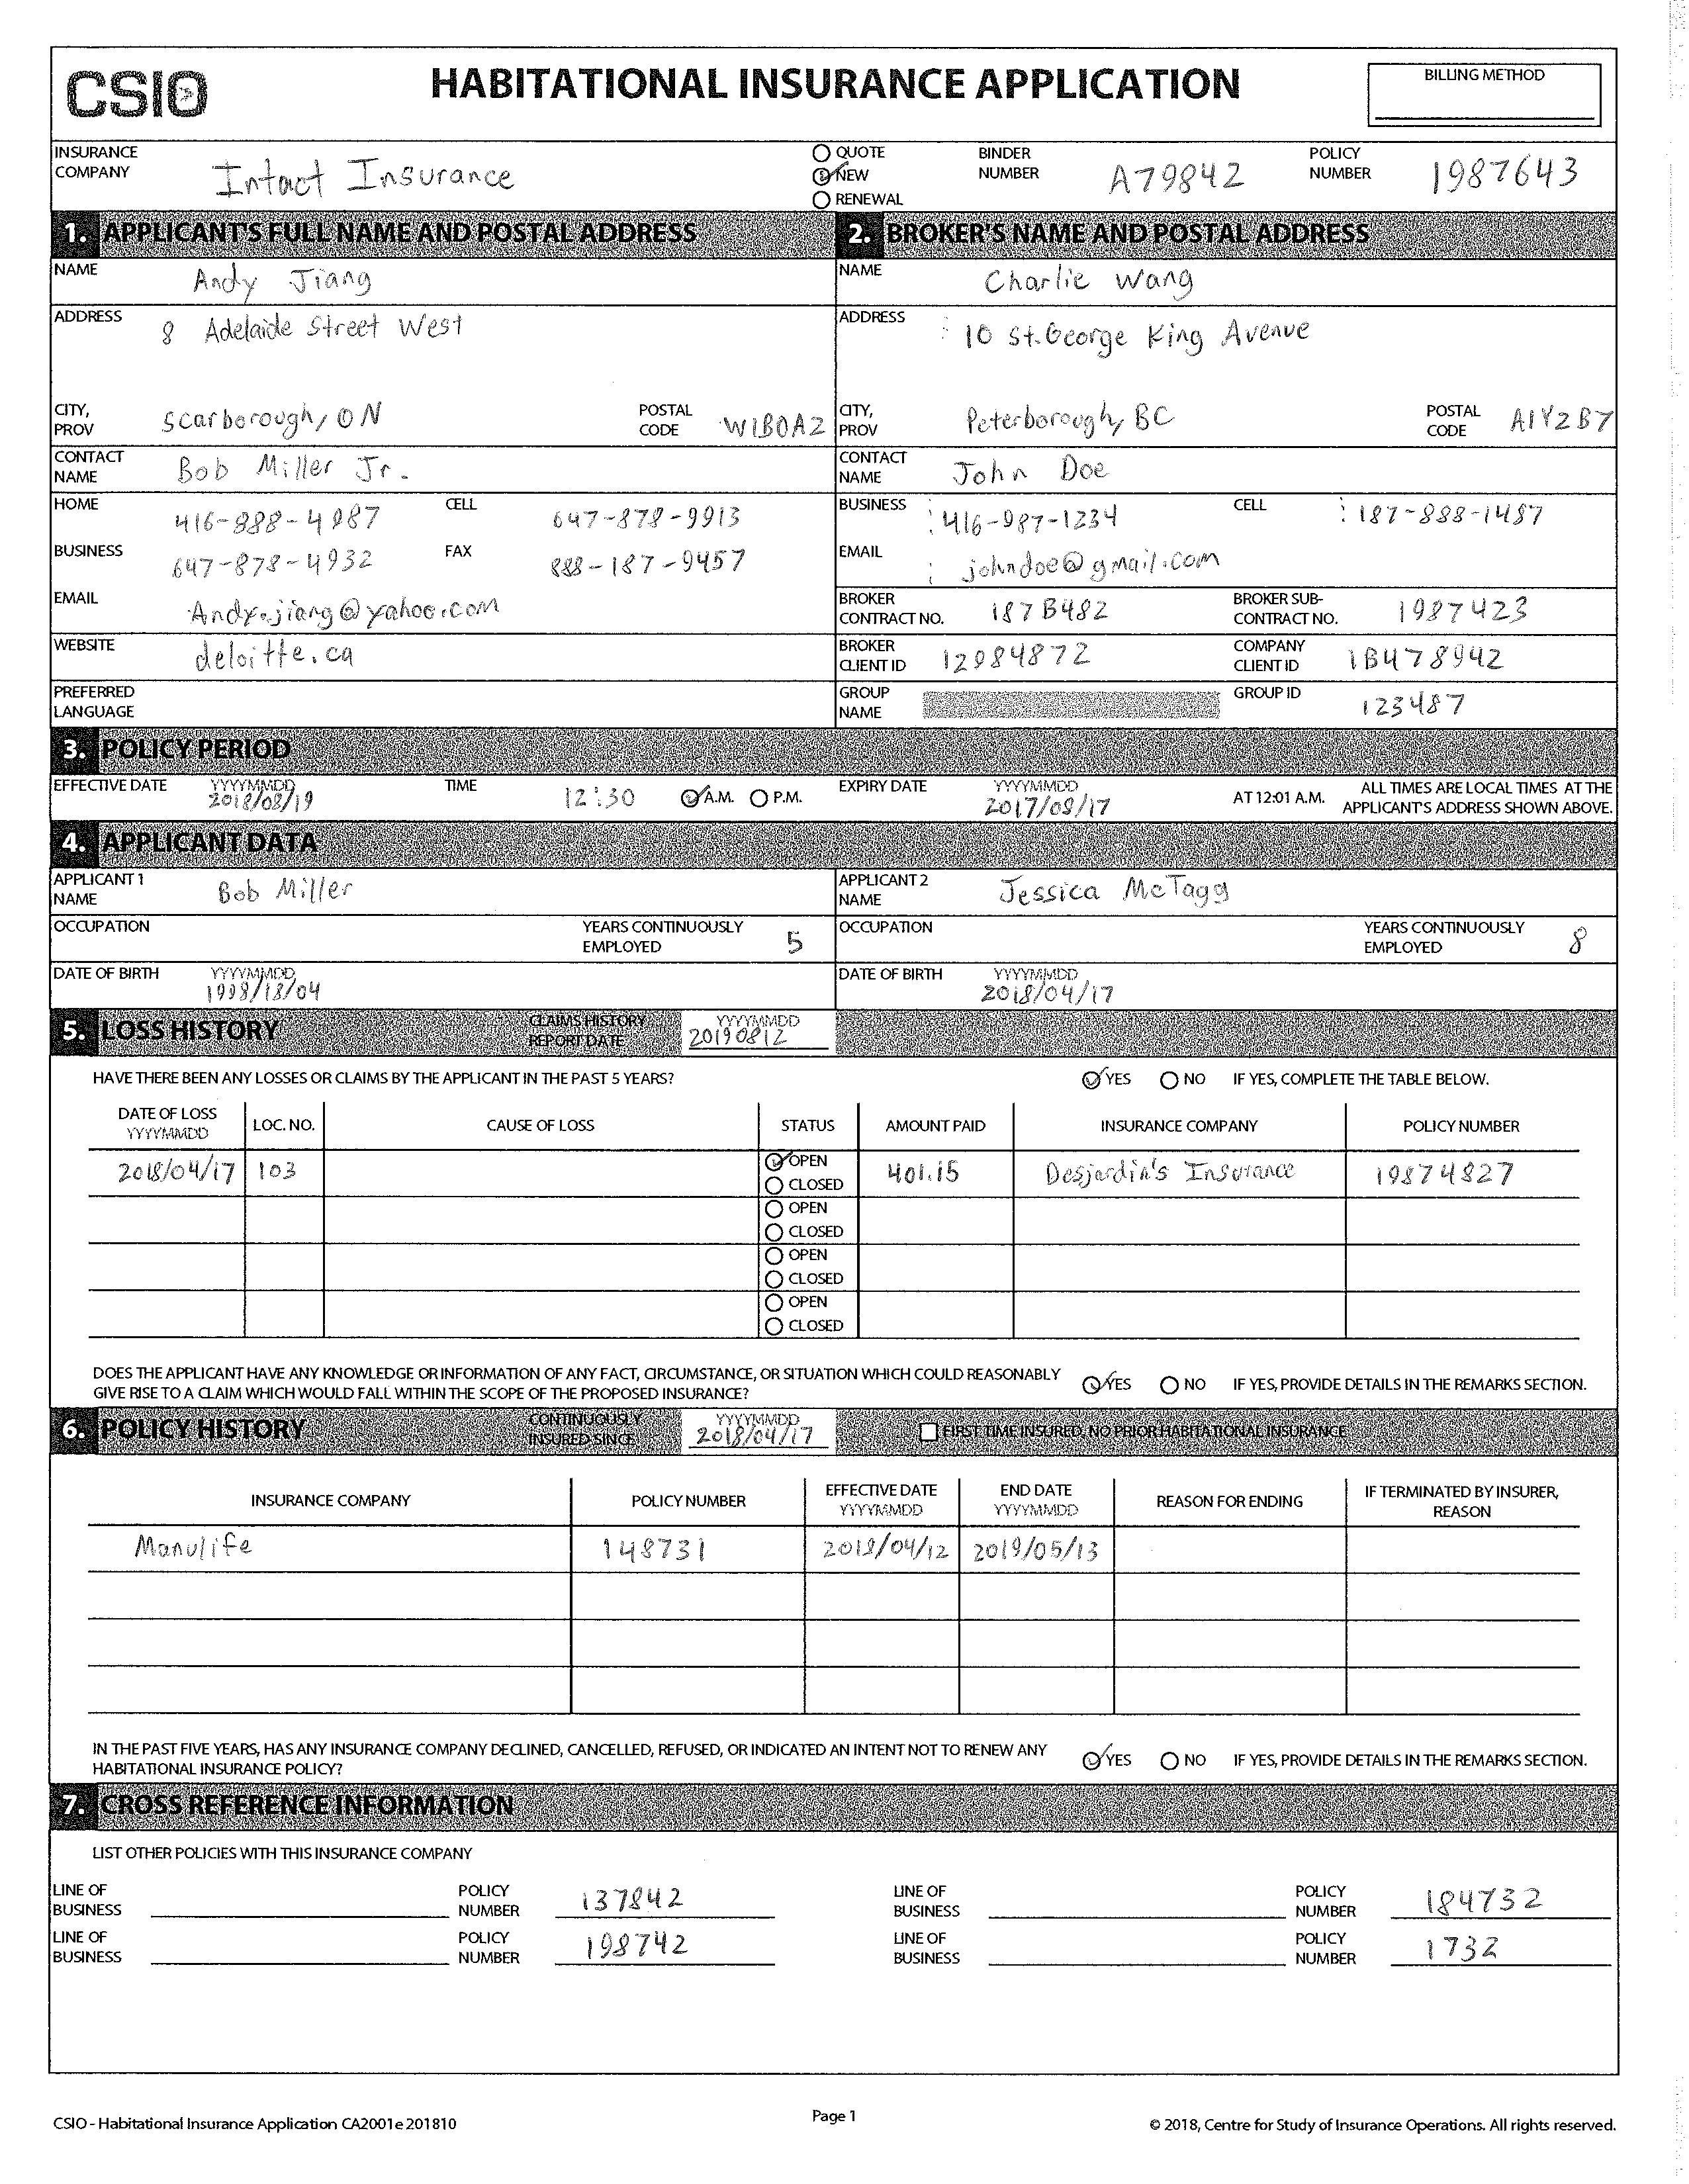 CSIO
HABITATIONAL INSURANCE APPLICATION
BILLING METHOD
INSURANCE COMPANY Intact Insurance
QUOTE
NEW
RENEWAL
BINDER NUMBER A79842
POLICY NUMBER 1987643
1. APPLICANT'S FULL NAME AND POSTAL ADDRESS
NAME Andy Jiang
ADDRESS 8 Adelaide Street West
CITY, PROV Scarborough, ON POSTAL CODE W1B0A2
CONTACT NAME Bob Miller Jr.
HOME 416-888-4987 CELL 647-878-9913
BUSINESS 647-878-4932 FAX 888-187-9457
EMAIL Andy.jiang@yahoo.com
WEBSITE deloitte.ca
PREFERRED LANGUAGE
2. BROKER'S NAME AND POSTAL ADDRESS
NAME Charlie Wang
ADDRESS : 10 St.George King Avenue
CITY, PROV Peterborough, BC POSTAL CODE A1Y2B7
CONTACT NAME John Doe
BUSINESS : 416-987-1234 CELL : 187-888-1487
EMAIL : johndoe@gmail.com
BROKER CONTRACT NO. 187B482 BROKER SUB-CONTRACT NO. 1987423
BROKER CLIENT ID 12984872 COMPANY CLIENT ID 1B478942
GROUP NAME GROUP ID 123487
3. POLICY PERIOD
EFFECTIVE DATE YYYYMMDD 2018/08/19 TIME 12:30 A.M. P.M. EXPIRY DATE YYYYMMDD 2017/08/17 AT 12:01 A.M. ALL TIMES ARE LOCAL TIMES AT THE APPLICANT'S ADDRESS SHOWN ABOVE.
4. APPLICANT DATA
APPLICANT 1 NAME Bob Miller APPLICANT 2 NAME Jessica McTagg
OCCUPATION YEARS CONTINUOUSLY EMPLOYED 5 OCCUPATION YEARS CONTINUOUSLY EMPLOYED 8
DATE OF BIRTH YYYYMMDD 1998/18/04 DATE OF BIRTH YYYYMMDD 2018/04/17
5. LOSS HISTORY CLAIMS HISTORY REPORT DATE YYYYMMDD 20190812
HAVE THERE BEEN ANY LOSSES OR CLAIMS BY THE APPLICANT IN THE PAST 5 YEARS? YES NO IF YES, COMPLETE THE TABLE BELOW.
DATE OF LOSS YYYYMMDD LOC. NO. CAUSE OF LOSS STATUS AMOUNT PAID INSURANCE COMPANY POLICY NUMBER
2018/04/17 103 OPEN CLOSED 401.15 Desjardin's Insurance 19874827
OPEN
CLOSED
OPEN
CLOSED
OPEN
CLOSED
DOES THE APPLICANT HAVE ANY KNOWLEDGE OR INFORMATION OF ANY FACT, CIRCUMSTANCE, OR SITUATION WHICH COULD REASONABLY
GIVE RISE TO A CLAIM WHICH WOULD FALL WITHIN THE SCOPE OF THE PROPOSED INSURANCE? YES NO IF YES, PROVIDE DETAILS IN THE REMARKS SECTION.
6. POLICY HISTORY CONTINUOUSLY INSURED SINCE YYYYMMDD 2018/04/17 FIRST TIME INSURED, NO PRIOR HABITATIONAL INSURANCE
INSURANCE COMPANY POLICY NUMBER EFFECTIVE DATE YYYYMMDD END DATE YYYYMMDD REASON FOR ENDING IF TERMINATED BY INSURER, REASON
Manulife 148731 2018/04/12 2019/05/13
IN THE PAST FIVE YEARS, HAS ANY INSURANCE COMPANY DECLINED, CANCELLED, REFUSED, OR INDICATED AN INTENT NOT TO RENEW ANY
HABITATIONAL INSURANCE POLICY? YES NO IF YES, PROVIDE DETAILS IN THE REMARKS SECTION.
7. CROSS REFERENCE INFORMATION
LIST OTHER POLICIES WITH THIS INSURANCE COMPANY
LINE OF BUSINESS POLICY NUMBER 137842 LINE OF BUSINESS POLICY NUMBER 184732
LINE OF BUSINESS POLICY NUMBER 198742 LINE OF BUSINESS POLICY NUMBER 1732
CSIO - Habitational Insurance Application CA2001e 201810
Page 1
© 2018, Centre for Study of Insurance Operations. All rights reserved.